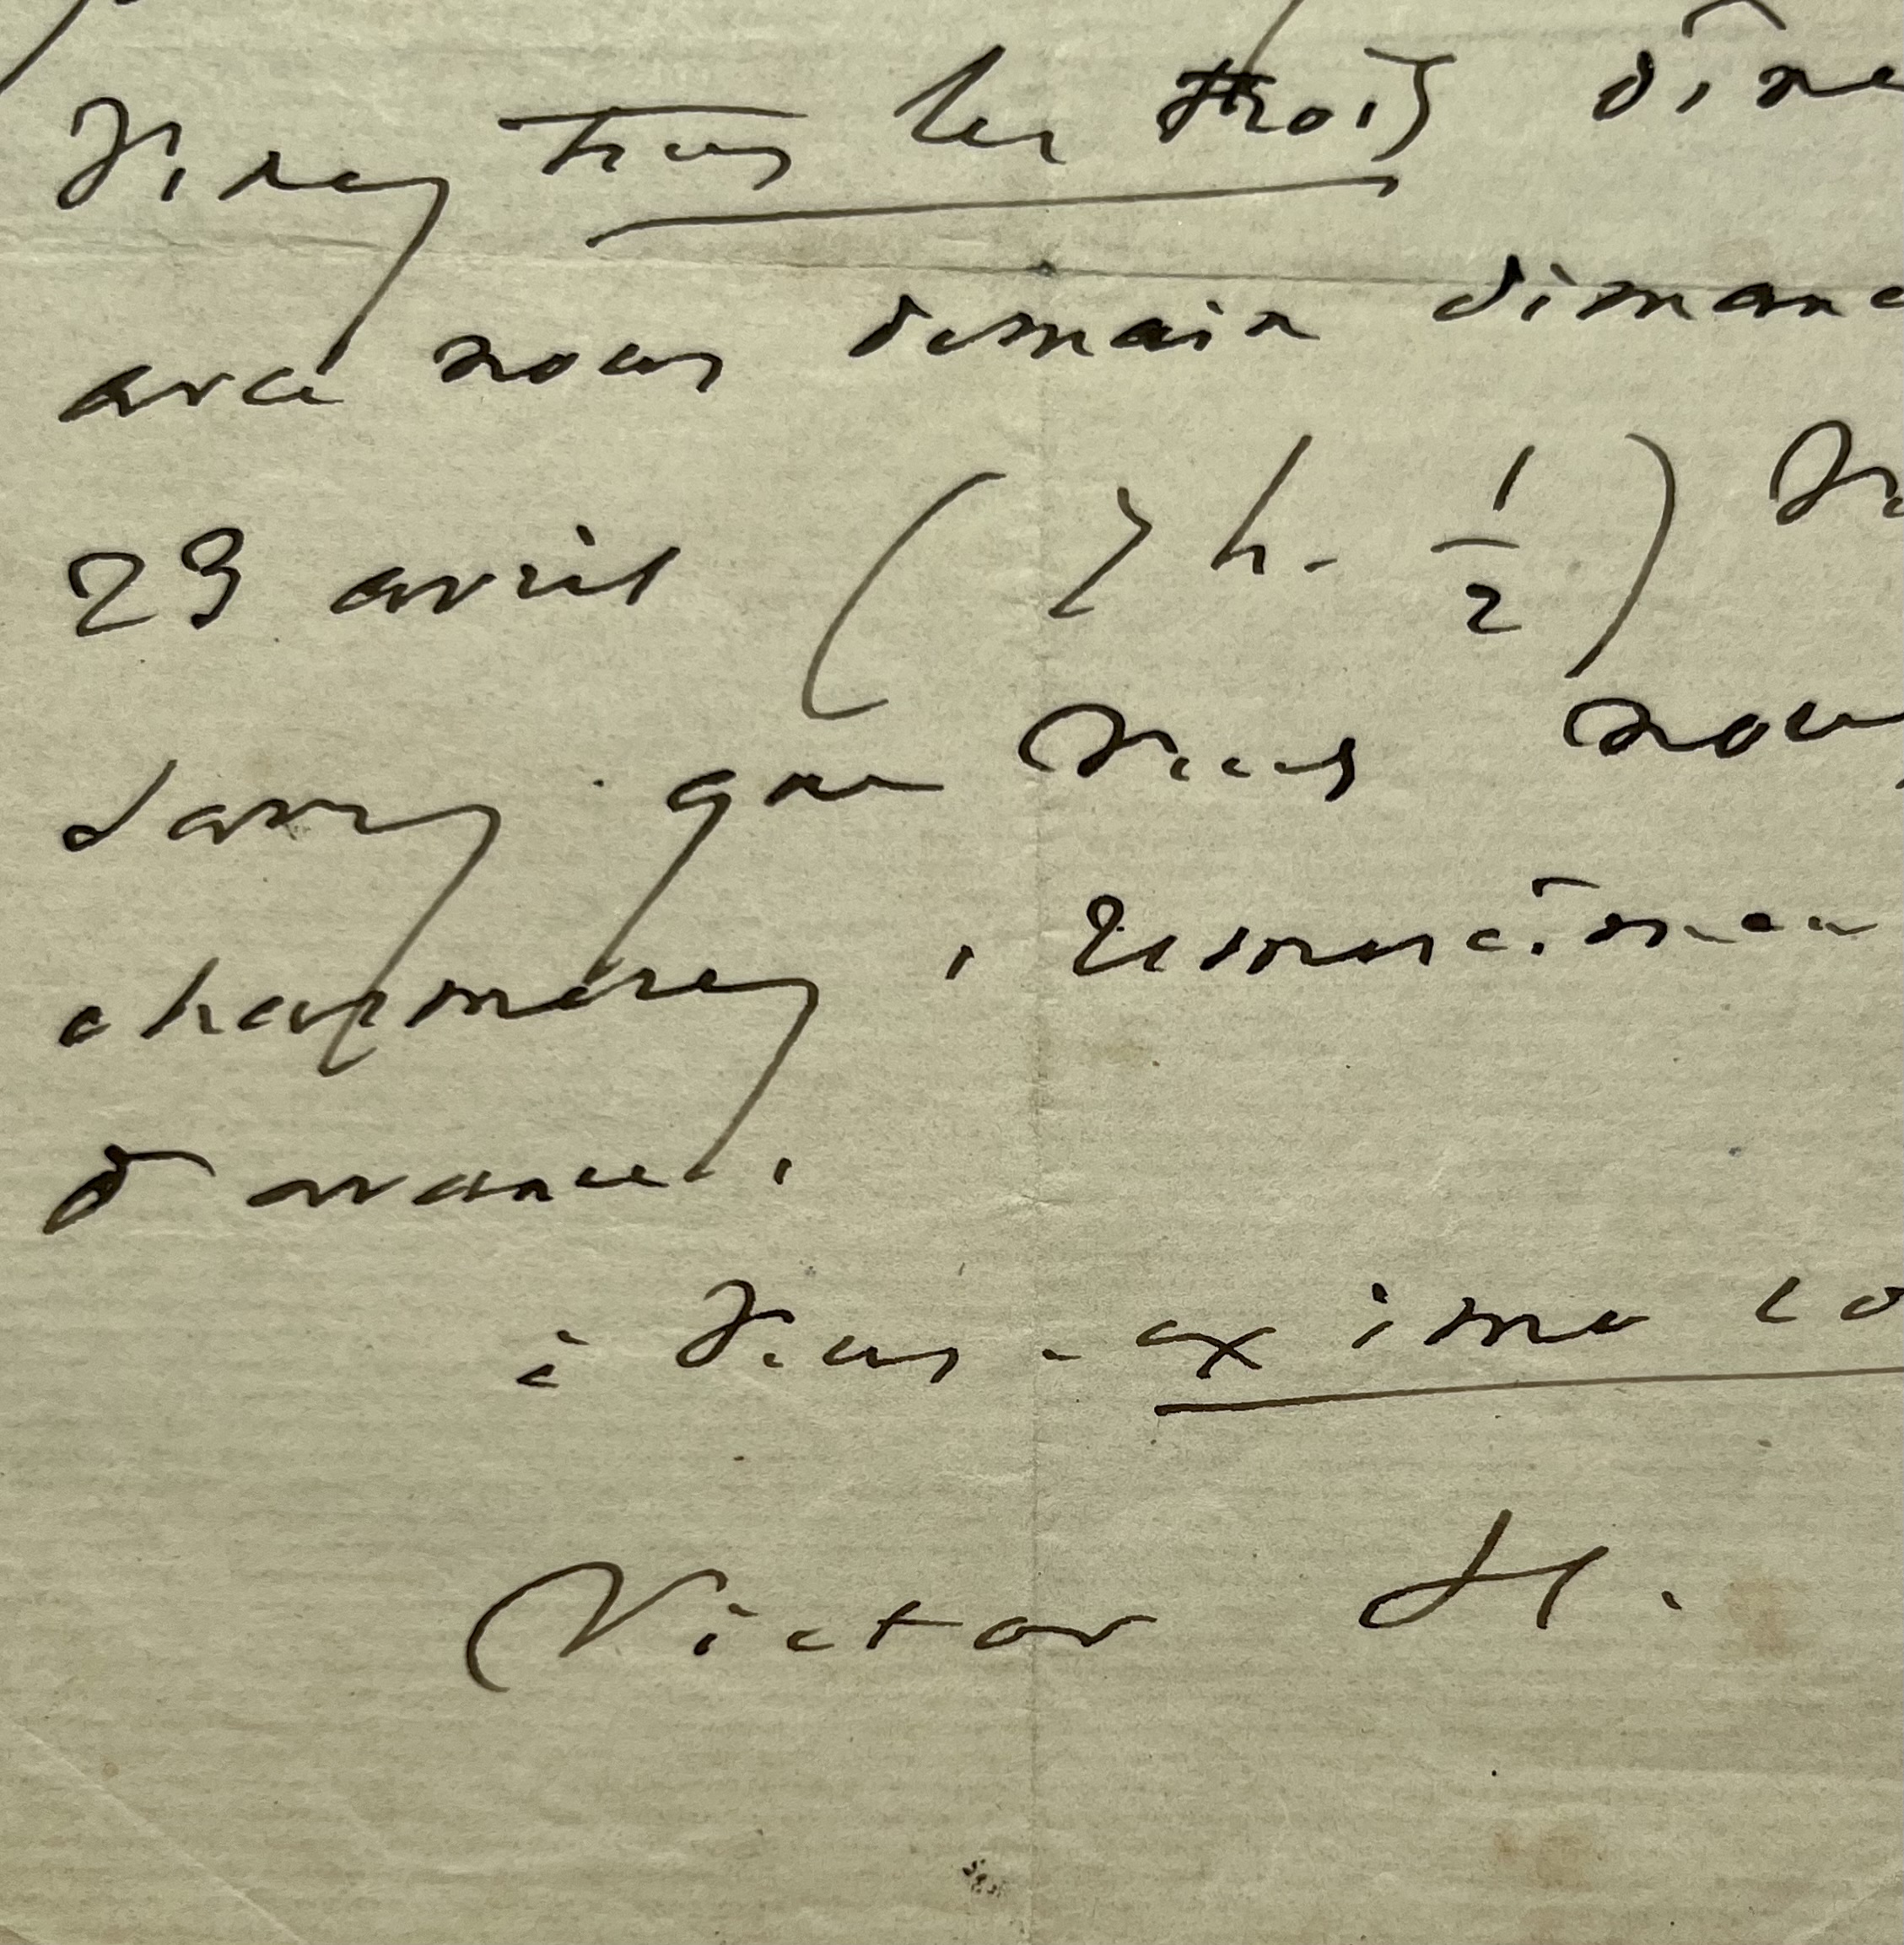 Venez tous les trois dîne
avec nous demain dimanc
23 avril (7 h. 1/2) V
savez que vous nous
charmerez, remerciemen
d'avance.
à vous - ex imo co
Victor H.